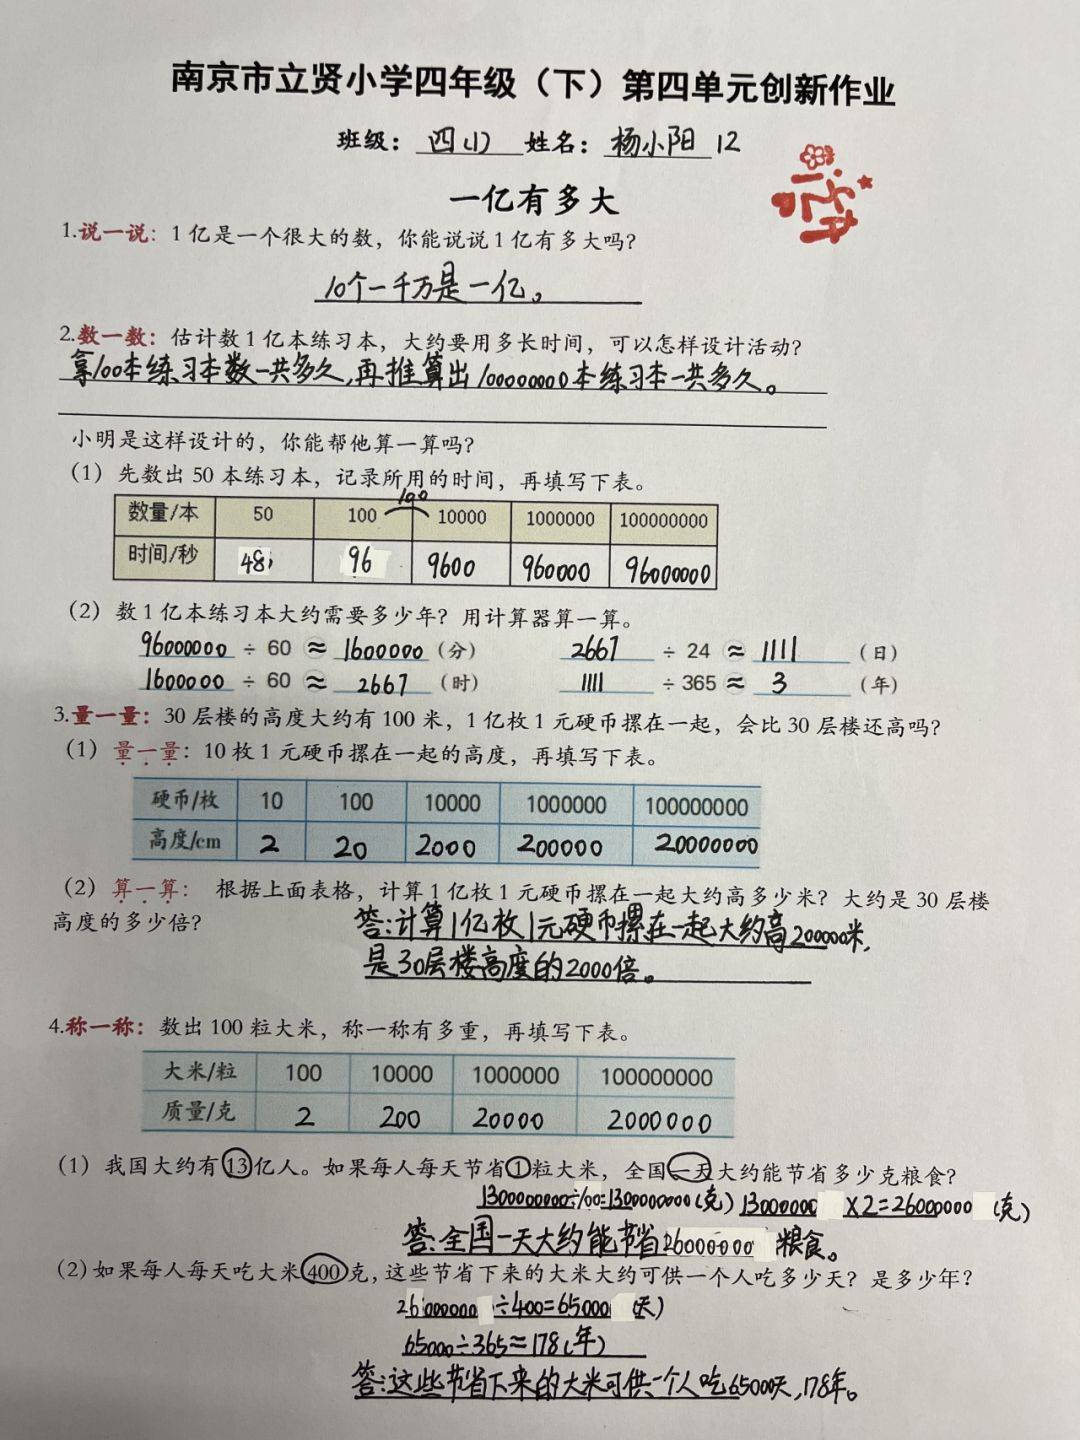 南京市立贤小学四年级（下）第四单元创新作业
班级：四(1) 姓名：杨小阳 12
一亿有多大
1.说一说：1亿是一个很大的数，你能说说1亿有多大吗？
10个一千万是一亿。
2.数一数：估计数1亿本练习本，大约要用多长时间，可以怎样设计活动？
拿100本练习本数一共多久,再推算出100000000本练习本一共多久。
小明是这样设计的，你能帮他算一算吗？
（1）先数出50本练习本，记录所用的时间，再填写下表。
100
数量/本 50 100 10000 1000000 100000000
时间/秒 48 96 9600 960000 96000000
（2）数1亿本练习本大约需要多少年？用计算器算一算。
96000000 ÷ 60 ≈ 1600000（分） 2667 ÷ 24 ≈ 1111（日）
1600000 ÷ 60 ≈ 2667（时） 1111 ÷ 365 ≈ 3（年）
3.量一量：30层楼的高度大约有100米，1亿枚1元硬币摞在一起，会比30层楼还高吗？
（1）量一量：10枚1元硬币摞在一起的高度，再填写下表。
硬币/枚 10 100 10000 1000000 100000000
高度/cm 2 20 2000 200000 20000000
（2）算一算： 根据上面表格，计算1亿枚1元硬币摞在一起大约高多少米？大约是30层楼
高度的多少倍？
答:计算1亿枚1元硬币摞在一起大约高200000米,
是30层楼高度的2000倍。
4.称一称：数出100粒大米，称一称有多重，再填写下表。
大米/粒 100 10000 1000000 100000000
质量/克 2 200 20000 2000000
（1）我国大约有13亿人。如果每人每天节省1粒大米，全国一天大约能节省多少克粮食？
1300000000÷100=1300000000(克) 13000000×2=26000000(克)
答:全国一天大约能节省26000000粮食。
（2）如果每人每天吃大米400克，这些节省下来的大米大约可供一个人吃多少天？是多少年？
26000000÷400=65000(天)
65000÷365≈178(年)
答:这些节省下来的大米可供一个人吃65000天,178年。